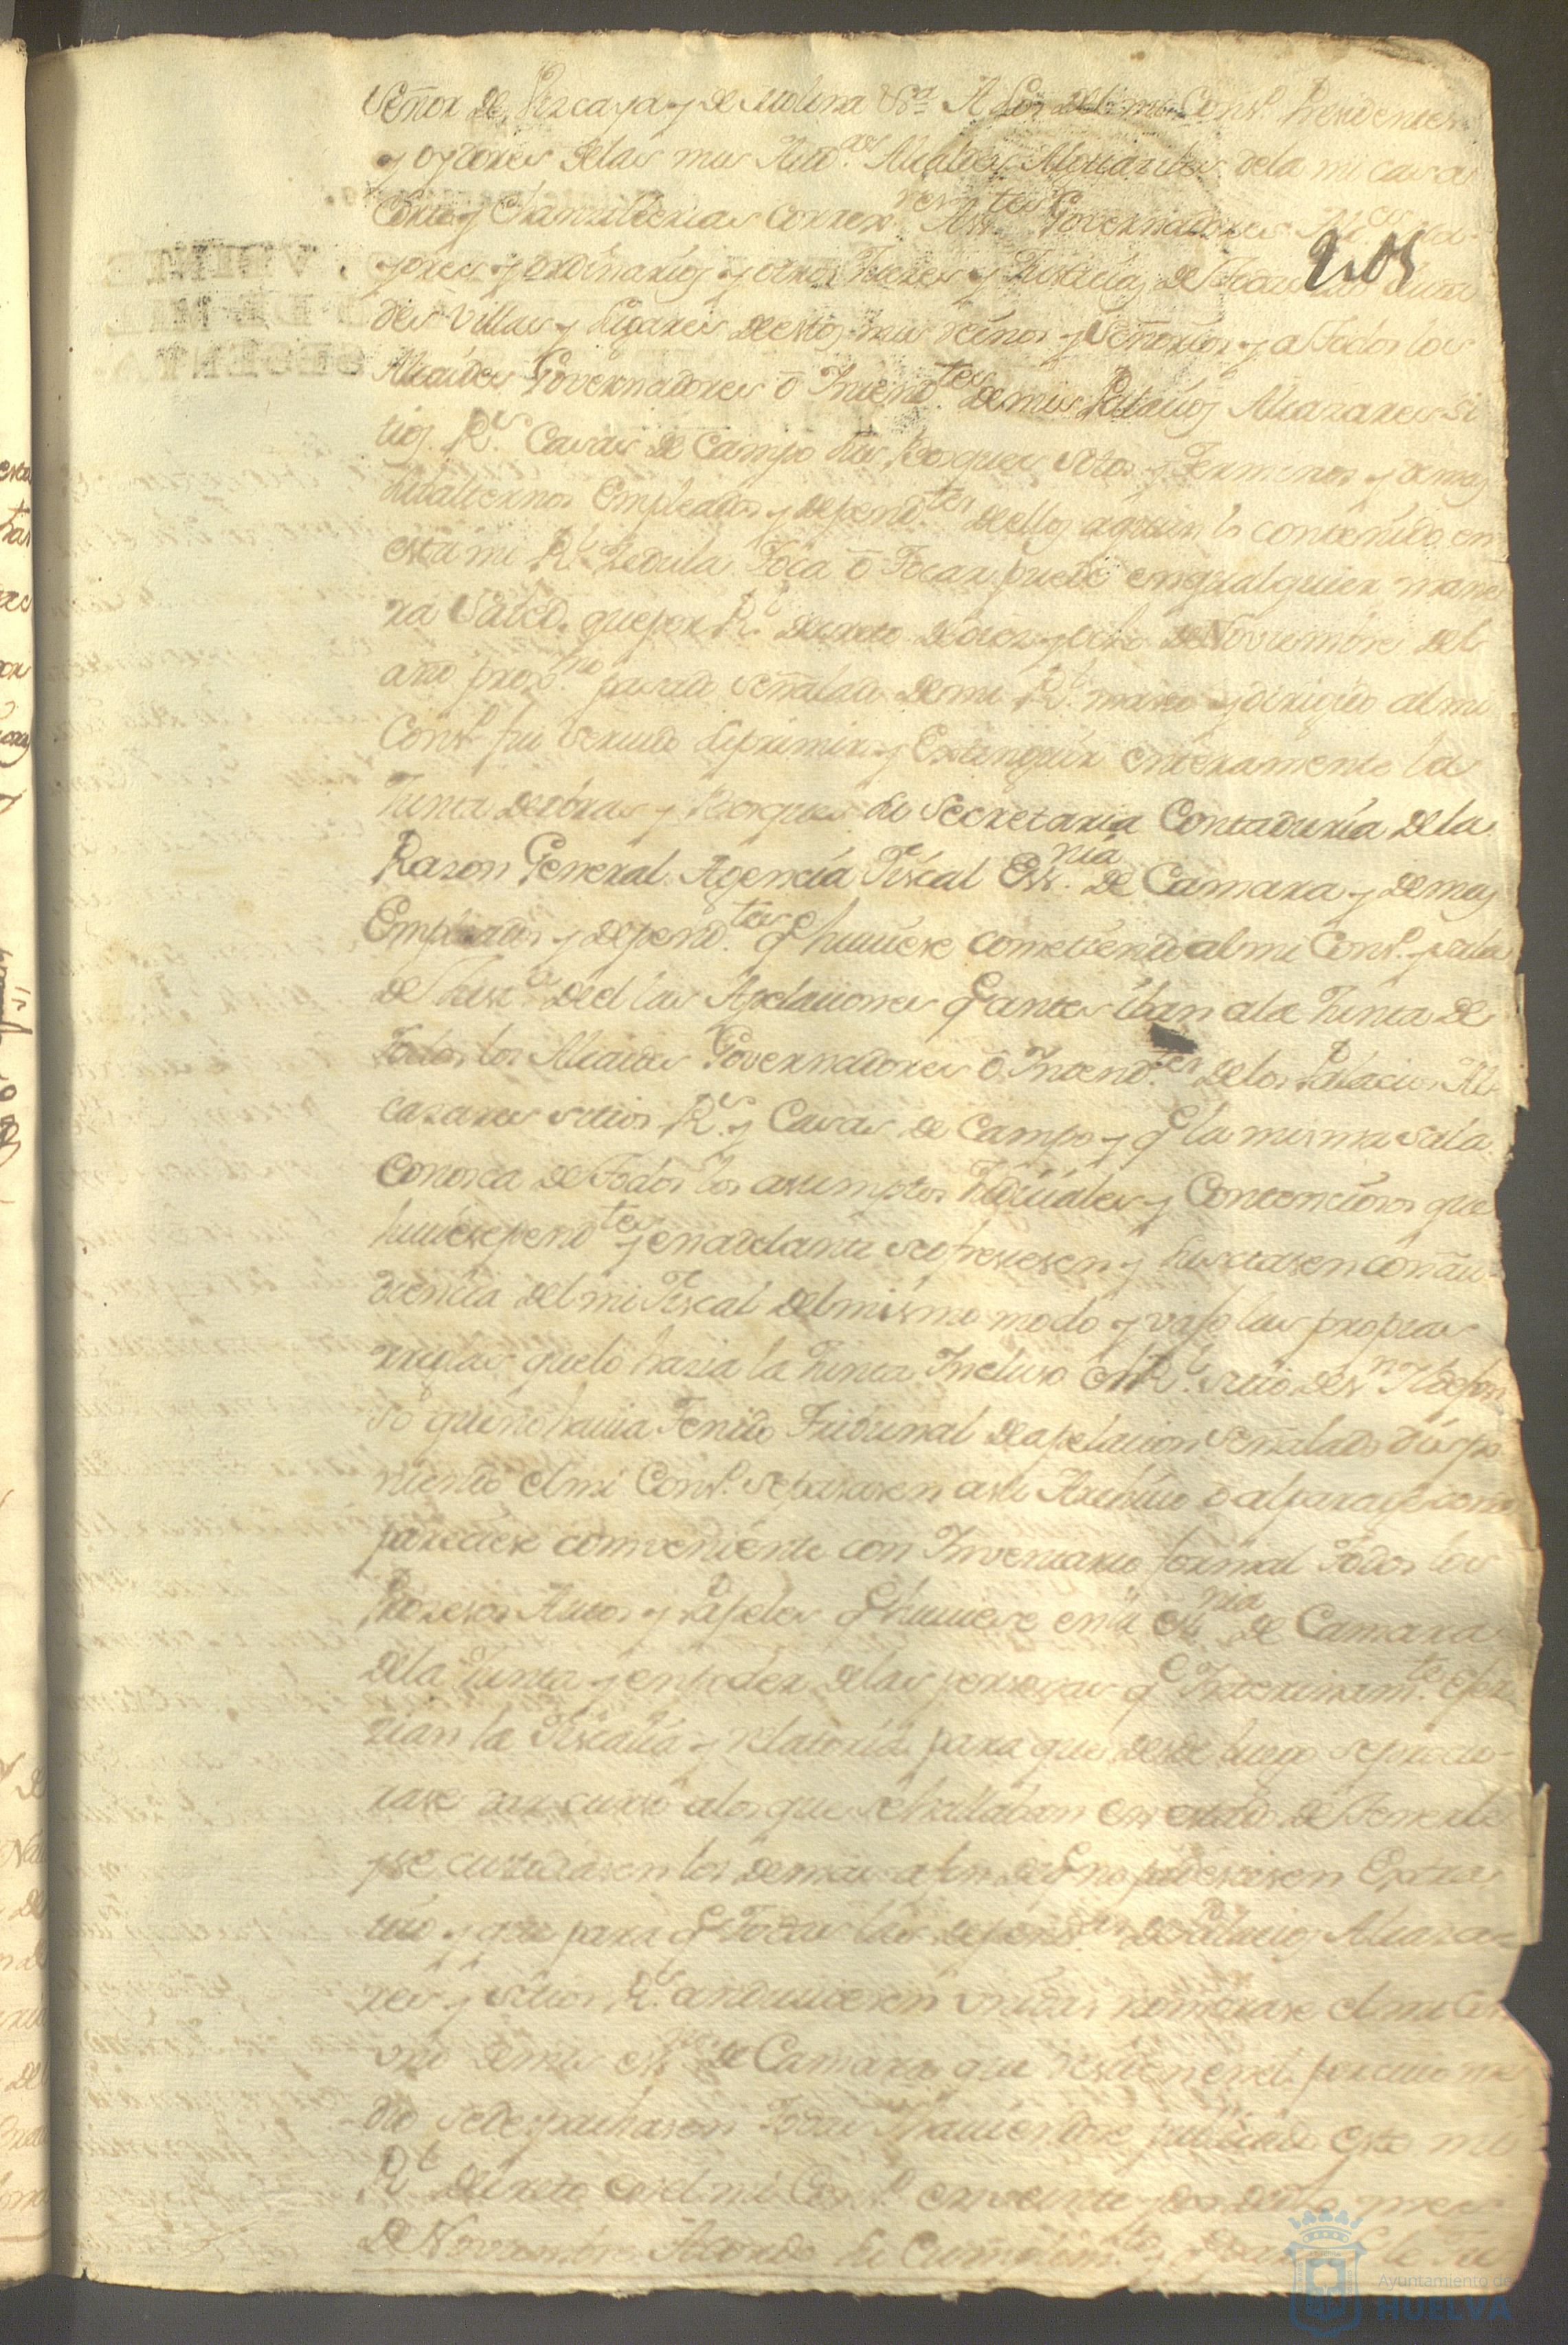 Señor de Vizcaya y de Molina &ra A los del mi Cons.º Presidentes
y Oydores de las mis Aud.as Alcaldes Alguaciles de la mi casa
Corte y Chanzillerias Correx.res Asis.tes Governadores Alc.es ma-
yores y ordinarios y otros Jueces y Justicias de todas las Ciuda
205
des Villas y Lugares de estos mis reinos y Señorios y a Todos los
Alcaides Governadores ō Intend.tes de mis Palacios Alcazares Si
tios R.s Casas de Campo sus Bosques sotos y Terminos y demas
subalternos Empleados y depend.tes de ellos aquien lo contenido en
esta mi R.l Zedula Toca ō Tocar puede en qualquier mane
ra Saved, que por R.l decreto de diez y ocho de Noviembre del
año prox.mo pasado señalado de mi R.l mano y dirigido al mi
Cons.º fui servido suprimir y Extenguir enteramente la
Junta de obras y Bosques su Secretaria Contaduria de la
Razon General Agencia Fiscal Ess.nia de Camara y demas
Empleados y depend.tes q.e huuiese cometiendo al mi Cons.º y sala
de Just.a de el las Apelaciones q.e antes iban a la Junta de
todos los Alcaides Governadores ō Intend.tes de los Palacios Al-
cazares sitios R.s y Casas de Campo y q.e la misma sala
conosca de Todos los asumptos Judiciales y Contenciosos que
huuiese pend.tes y en adelante se ofreciesen y suscitasen con au-
diencia del mi Fiscal del mismo modo y vajo las propias
reglas que lo hazia la Junta Incluso el R.l sitio de S.n Ildefon
so que no hauia Tenido Tribunal de apelacion señalado dispo
niendo el mi Cons.º se pasasen a su Archivo ō al paraje como
pareciese combeniente con Inventario formal Todos los
Prozesos Autos y Papeles q.e huuiese en la ess.nia de Camara
de la Junta y en poder de las personas q.e Interinam.te ejer
cian la Fiscalia y relatoria para que desde luego se procu-
rase dar curso a los que se hallaban en estado de Tenerle
y se custodiasen los demas a fin de q.e no padeciesen Extra
vio y que para q.e Todas las depend.as de Palacios Alcaza-
res y sitios R.s anduuiesen unidas nombrase el mi Con
uno de mis ess.nos de Camara que residen en el por cuio me
dio se despachasen Todas Y hauiendose publicado este mi
R.l decreto en el mi Cons.º en veinte y dos de dicho mes
de Noviembre Acordo su Cumplim.to
Ayuntamiento de
HUELVA